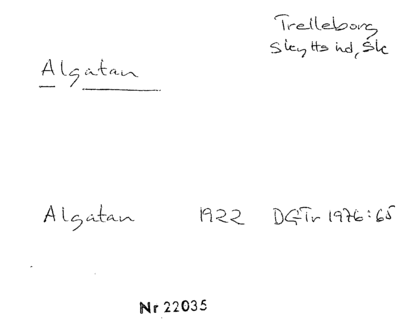 Trelleborg
Skytts hd, Sk
Algatan
Algatan 1922 DGTr 1976:65
Nr 22035